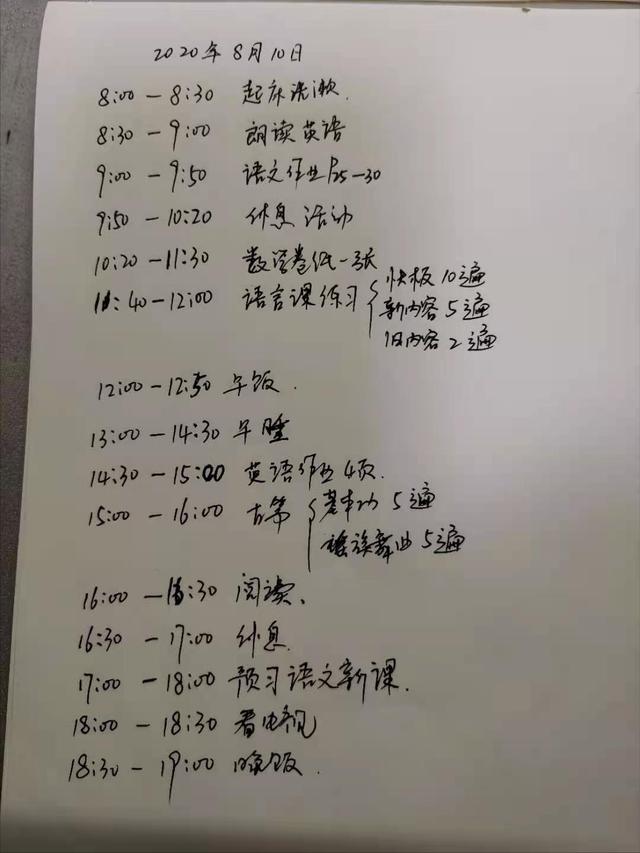 2020年8月10日
8:00 — 8:30 起床洗漱.
8:30 — 9:00 朗读英语
9:00 — 9:50 语文作业P25—30
9:50 — 10:20 休息活动
10:20 — 11:30 数学卷纸一张
11:40 — 12:00 语言课练习 { 快板10遍
新内容5遍
旧内容2遍
12:00 — 12:50 午饭.
13:00 — 14:30 午睡
14:30 — 15:00 英语作业4页.
15:00 — 16:00 古筝 { 基本功5遍
瑶族舞曲5遍
16:00 — 16:30 阅读、
16:30 — 17:00 休息.
17:00 — 18:00 预习语文新课.
18:00 — 18:30 看电视
18:30 — 19:00 晚饭.